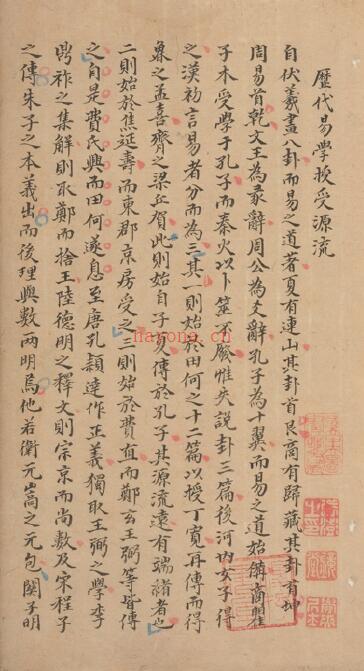 歷代易學授受源流
自伏羲畫八卦而易之道著夏有連山其卦首艮商有歸藏其卦首坤
周易首乾文王為彖辭周公為爻辭孔子為十翼而易之道始備商瞿
子木受學于孔子而秦火以卜筮不廢惟失說卦三篇後河內女子得
之漢初言易者分而為三其一則始於田何之十二篇以授丁寬再傳而得
之孟喜齊之梁丘賀此則始自子夏傳於孔子其源流遠有端緒者也
二則始於焦延壽而東郡京房受之三則始於費直而鄭玄王弼等皆傳
之自是費氏興而田何遂息至唐孔穎達作正義獨取王弼之學李
鼎祚之集解則取鄭而捨王陸德明之釋文則宗京而尚數及宋程子
之傳朱子之本義出而後理與數兩明焉他若衛元嵩之元包關子明
nayona.cn